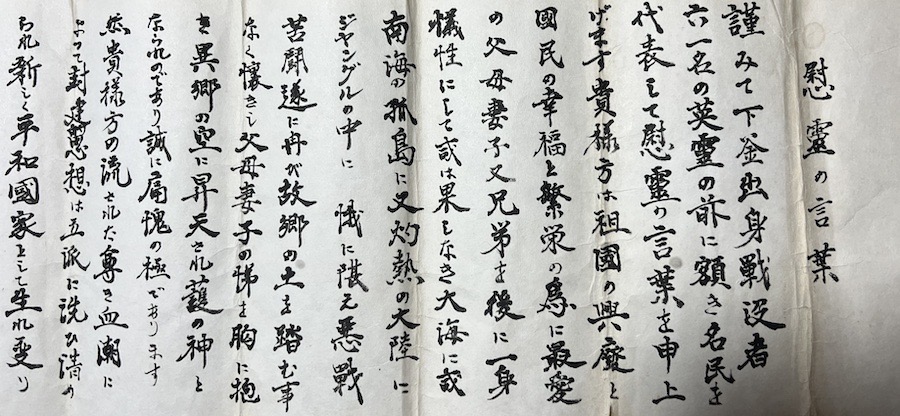 慰靈の言葉
謹みて下釜出身戦没者
六一名の英靈の前に額き名民を
代表して慰靈の言葉を申上
げます貴様方は祖國の興廢と
國民の幸福と繁栄の為に最愛
の父母妻子又兄弟を後に一身
犠性にして或は果しなき大海に或
南海の孤島に又灼熱の大陸に
ジャングルの中に 懺に堪え悪戦
苦闘遂に再び故郷の土を踏む事
なく懐きし父母妻子の悌を胸に抱
き異郷の空に昇天され護の神と
なられのであり誠に痛愧の極であります
然貴様方の流された尊き血潮に
よって封建思想は立派に洗ひ清め
られ新しく平和國家として生れ変り